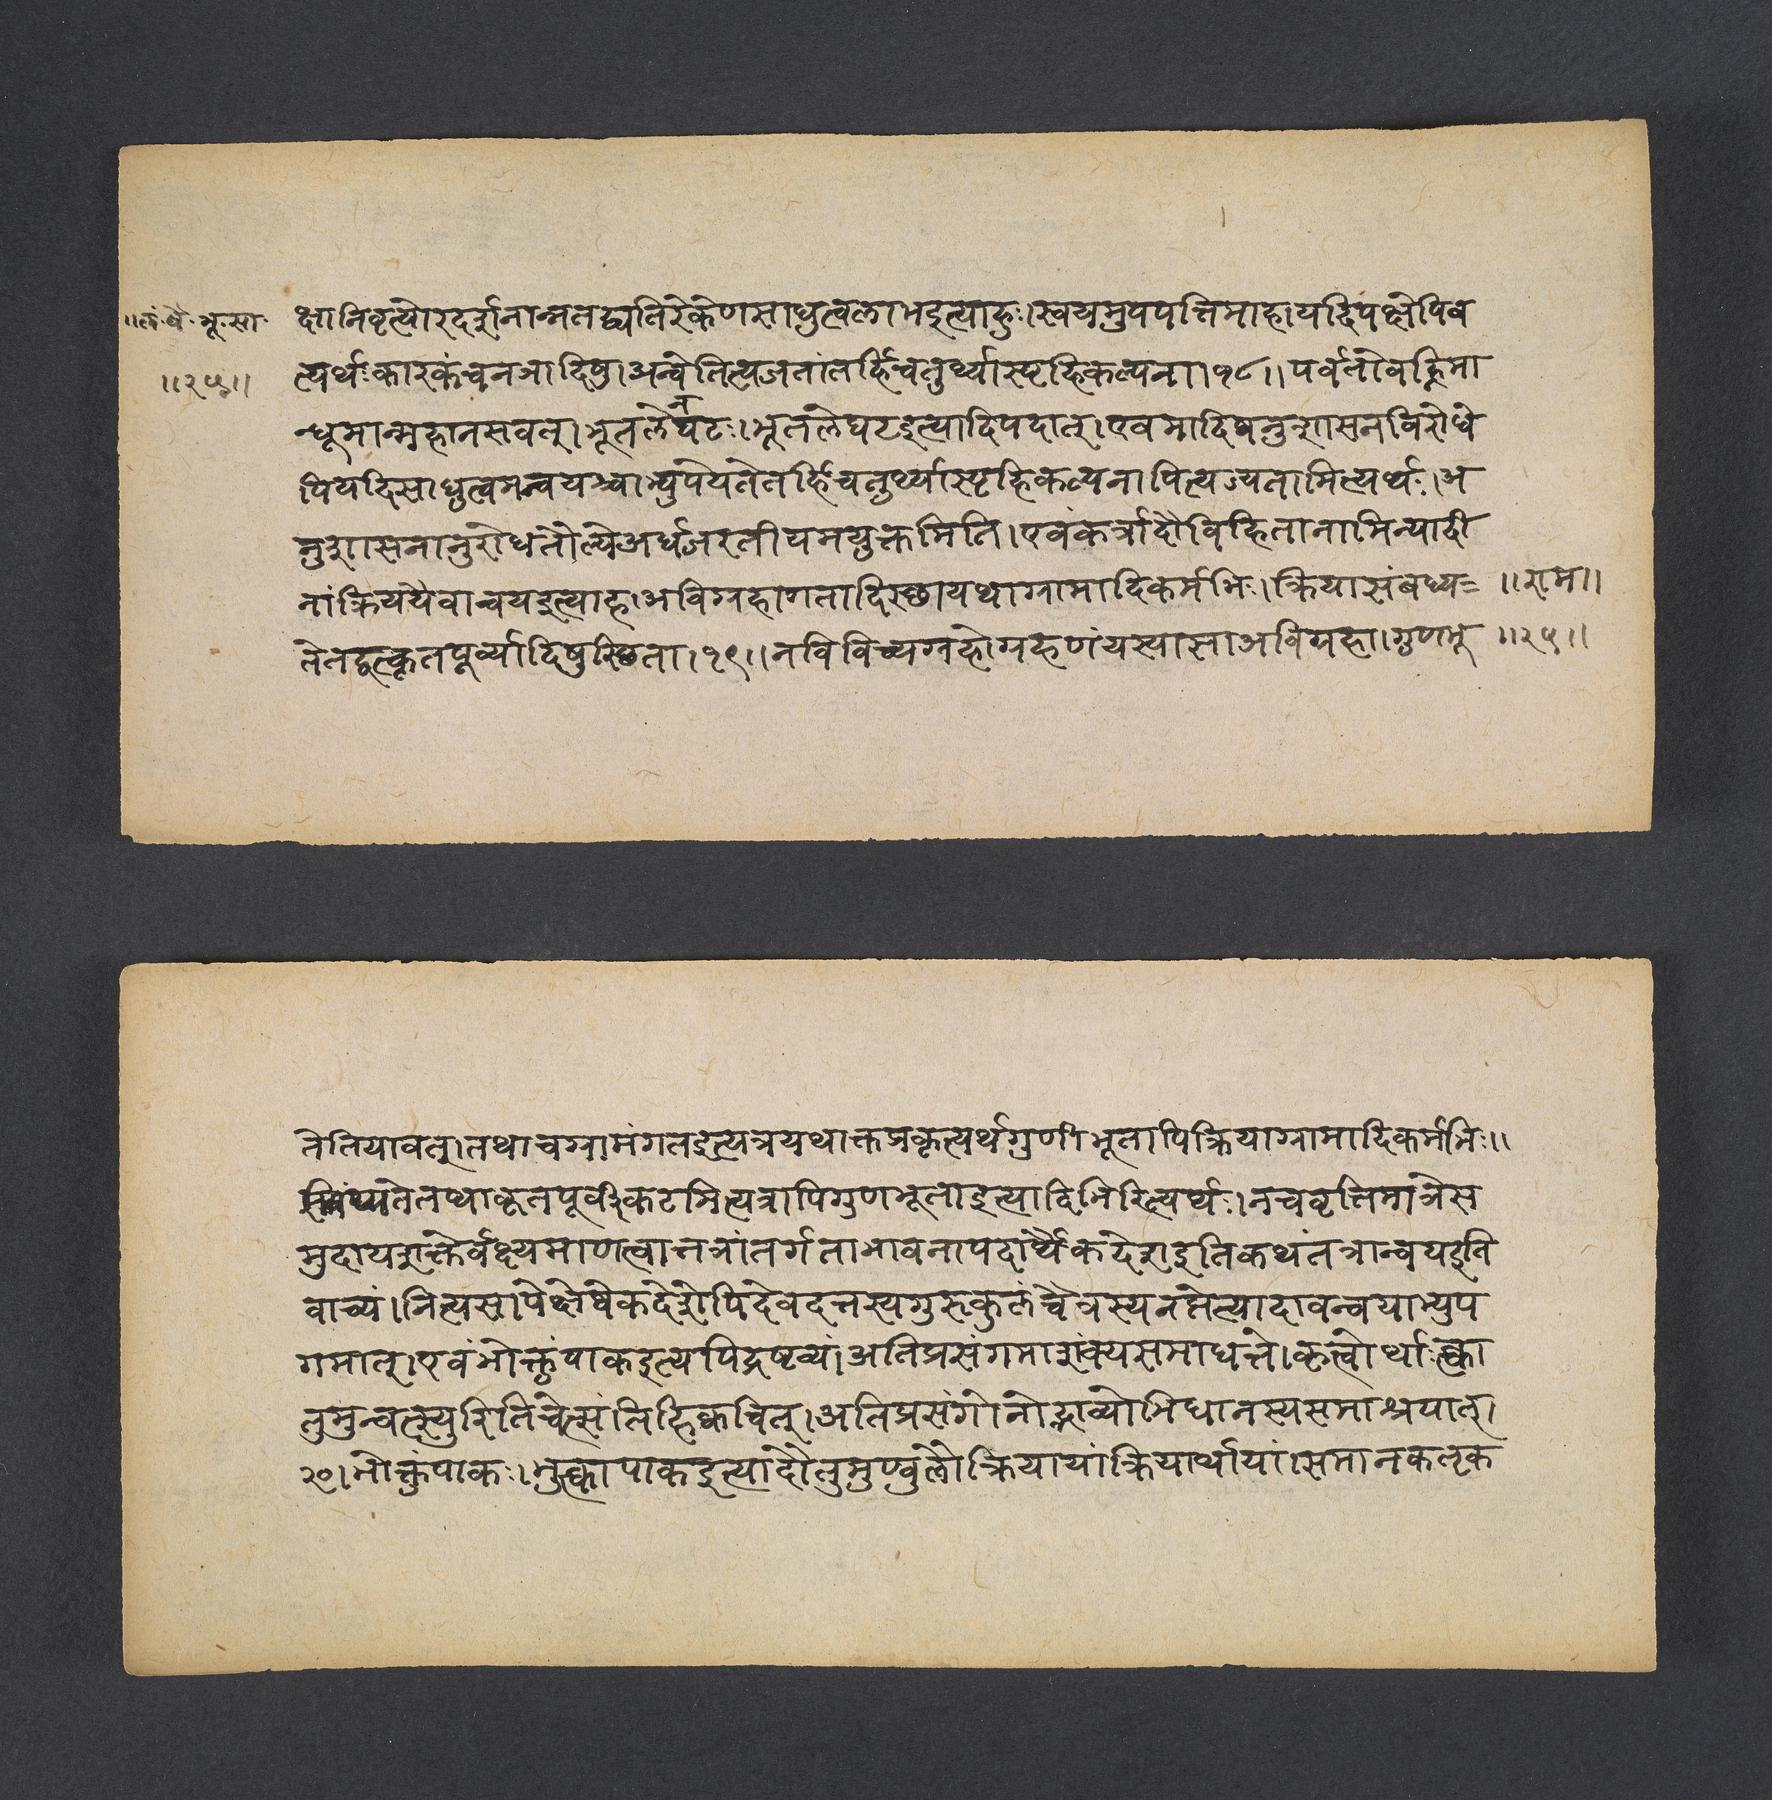 ॥लं॰वै॰भू॰सा॰
॥२५॥
क्षानिवृत्योरदर्शनान्नतद्व्यतिरेकेणसाधुत्वलाभइत्याहुः।स्वयमुपपत्तिमाह।यदिपक्षेपिव
त्यर्थःकारकंचनञादिषु।अन्वेतित्यजतांतर्हिचतुर्थ्यास्पृहिकल्पना।१८॥पर्वतोवह्निमा
न्धूमान्महानसवत्।भूतलेनघटः।भूतलेघटइत्यादिपदात्।एवमादिष्वनुशासनविरोधे
पियदिसाधुत्वमन्वयश्चाभ्युपेयतेतर्हिचतुर्थ्यास्पृहिकल्पनापित्यज्यतामित्यर्थः।अ
नुशासनानुरोधतौल्येअर्धजरतीयमयुक्तमिति।एवंकर्त्रादौविहितानामिन्यादी
नांक्रिययैवान्वयइत्याह।अविग्रहागतादिस्छायथाग्रामादिकर्मभिः।क्रियासंबध्य=
॥राम॥
तेतद्वत्कृतपूर्व्यादिषुस्छिता।१९॥नविविच्यग्रहोग्रहणंयस्यासाअविग्रहा।गुणभू
॥२५॥
तेतियावत्।तथाचग्रामंगतइत्यत्रयथाक्तप्रकृत्यर्थगुणीभूतापिक्रियाग्रामादिकर्मभिः॥
संबंध्यतेतथाकृतपूर्वीकटमित्यत्रापिगुणभूताइत्यादिभिरित्यर्थः।नचवृत्तिमात्रेस
मुदायशक्तेर्वक्ष्यमाणत्वात्तत्रांतर्गताभावनापदार्थैकदेशइतिकथंतत्रान्वयइति
वाच्यं।नित्यसापेक्षेष्वेकदेशेपिदेवदत्तस्यगुरुकुलंचैत्रस्यनप्तेत्यादावन्वयाभ्युप
गमात्।एवंभोक्तुंपाकइत्यपिद्रष्टव्यं।अतिप्रसंगमाशंक्यसमाधत्ते।कृत्वोर्थाःत्क्वा
तुमुन्वत्स्युरितिचेत्संतिहिक्वचित्।अतिप्रसंगोनोद्भाव्योभिधानस्यसमाश्रयात्।
२०।भोक्तुंपाकः।भुत्क्वापाकइत्यादौतुमुण्वुलौक्रियायांक्रियार्थायां।समानकतृक